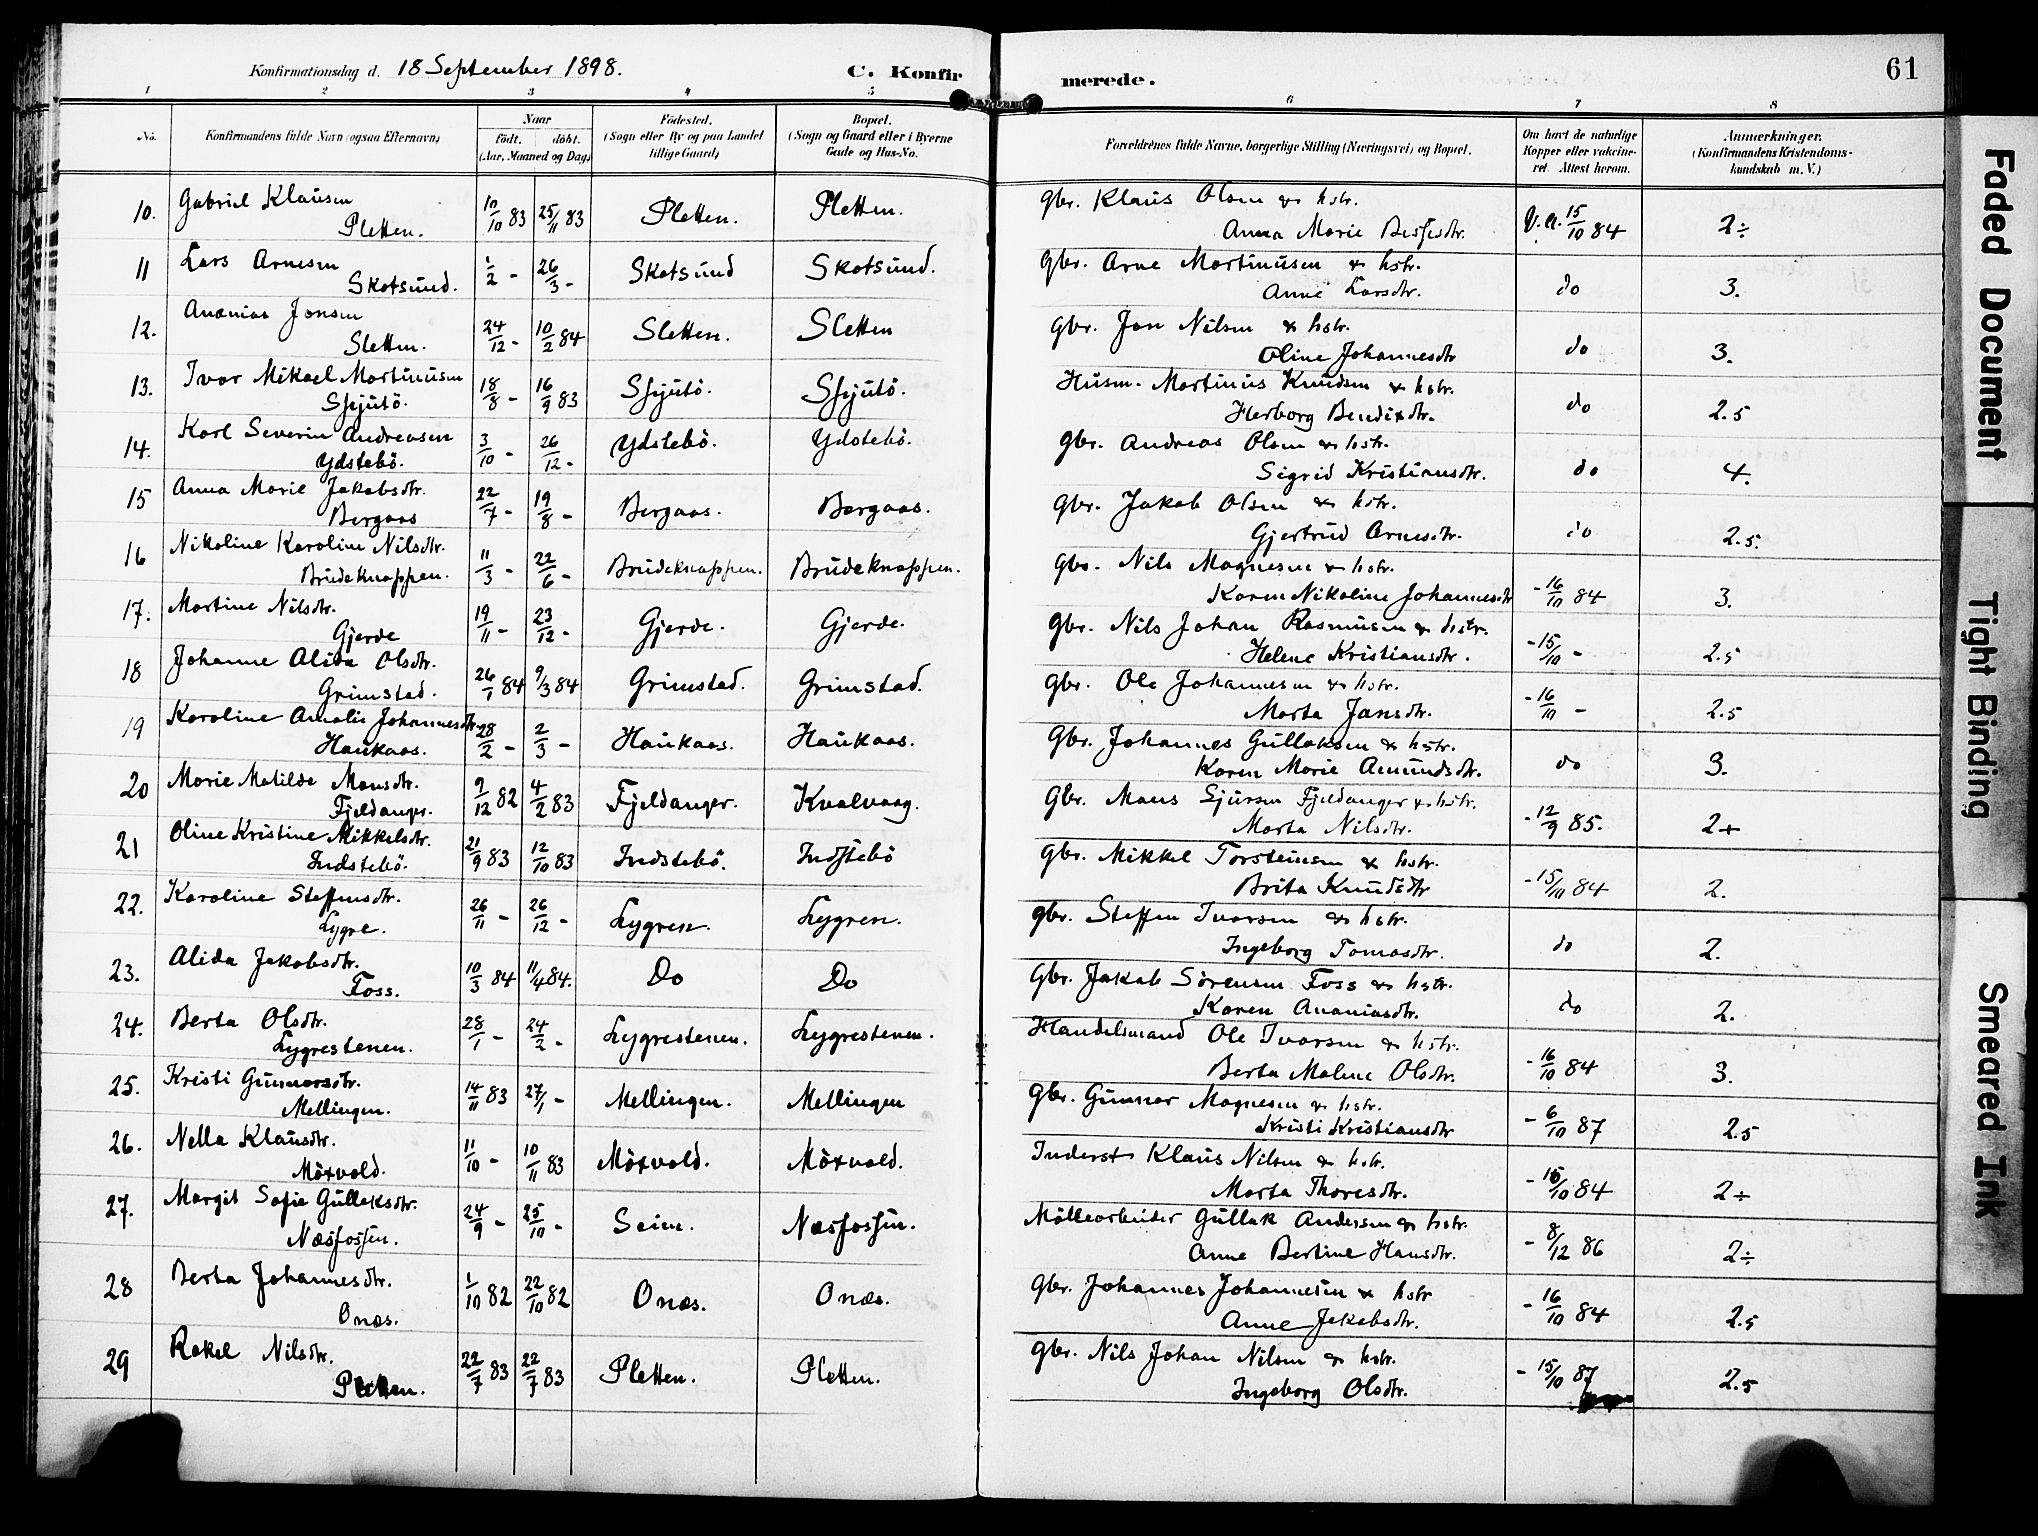 Konfirmationsdag d. 18 September 1898. C. Konfirmerede. 61
1 2 3 4 5 6 7 8
No. Konfirmandens fulde Navn (ogsaa Efternavn) Naar født. døbt. (Aar, Maaned og Dag) Fødested. (Sogn eller By og paa Landet tillige Gaard) Bopæl. (Sogn og Gaard eller i Byerne Gade og Hus-No. Forældrenes fulde Navne, borgerlige Stilling (Næringsvei) og Bopæl. Om havt de naturlige Kopper eller vakcineret. Attest herom. Anmærkninger. (Konfirmandens Kristendomskundskab m. V.)
10. Gabriel Klausen 10/10 83 25/11 83 Pletten. Pletten. Gbr. Klaus Olsen & hstr. V.a. 15/10 84 2÷
Pletten. Anna Marie
11 Lars Arnesen 1/2 - 26/3 - Skotsund Skotsund. Gbr. Arne Martinusen & hstr. do 3.
Skotsund. Anne Larsdtr.
12. Ananias Jonsen 24/12 - 10/2 84 Sletten. Sletten Gbr. Jon Nilsen & hstr. do 3.
Sletten. Oline Johannesdtr
13. Ivar Mikael Martinusen 18/8 - 16/9 83 Spjutö. Spjutö. Husm. Martinus Knudsen & hstr. do 2.5
Spjutö. Herborg Bendixdtr.
14. Karl Severin Andreasen 3/10 - 26/12 - Ydstebö. Ydstebö. Gbr. Andreas Olsen & hstr. do 4.
Ydstebö. Sigrid Kristiansdtr.
15 Anna Marie Jakobsdtr. 22/7 - 19/8 - Bergaas. Bergaas. Gbr. Jakob Olsen & hstr. do 2.5.
Bergaas Gjertrud Arnesdtr.
16 Nikoline Karoline Nilsdtr. 11/3 - 22/6 - Brudeknappen. Brudeknappen. Gbr. Nils Magnesen & hstr. - 16/10 84 3.
Brudeknappen. Karen Nikoline Johannesdtr
17. Martine Nilsdtr. 19/11 - 23/12 - Gjerde. Gjerde. Gbr. Nils Johan Rasmusen & hstr. - 15/10 - 2.5
Gjerde Helene Kristiansdtr.
18 Johanne Alida Olsdtr. 26/1 84 9/3 84 Grimstad. Grimstad. Gbr. Ole Johannesen & hstr. - 16/10 - 2.5
Grimstad. Marta Jansdtr.
19 Karoline Amalie Johannesdtr. 28/2 - 2/3 - Haukaas. Haukaas. Gbr. Johannes Gullaksen & hstr. do 3.
Haukaas. Karen Marie Amundsdtr.
20 Marie Matilde Monsdtr. 9/12 82 4/2 83 Fjeldanger. Kvalvaag. Gbr. Mons Sjursen Fjeldanger & hstr. - 12/9 85. 2+
Fjeldanger. Marta Nilsdtr.
21 Oline Kristine Mikkelsdtr. 21/9 83 12/10 83 Indstebö. Indstebö Gbr. Mikkel Torsteinsen & hstr. - 15/10 84 2.
Indstebö. Brita Knudsdtr
22. Karoline Steffensdtr. 26/11 - 26/12 - Lygren. Lygren. Gbr. Steffen Ivarsen & hstr. do 2.
Lygre. Ingeborg Tomasdtr.
23. Alida Jakobsdtr. 10/3 84 11/4 84. Do Do Gbr. Jakob Sörensen Foss & hstr. do 2.
Foss. Karen Ananiasdtr.
24. Berta Olsdtr. 28/1 - 24/2 - Lygrestenen. Lygrestenen. Handelsmand Ole Ivarsen & hstr. - 16/10 84 3.
Lygrestenen. Berta Malene Olsdtr.
25. Kristi Gunnarsdtr. 14/11 83 27/1 - Mellingen. Mellingen Gbr. Gunnar Magnesen & hstr. - 6/10 87 2.5
Mellingen. Kristi Kristiansdtr
26. Nella Klausdtr. 11/10 - 10/11 83 Möxvold. Möxvold. Inderst Klaus Nilsen & hstr. - 16/10 84 2÷
Möxvold. Marta Thoresdtr.
27. Margit Sofie Gullaksdtr. 24/9 - 25/10 - Seim. Næsfossen. Möllearbeider Gullak Andersen & hstr. - 8/12 86 2÷
Næsfossen. Anne Bertine Hansdtr.
28 Berta Johannesdtr. 1/10 82 22/10 82 Onæs. Onæs. Gbr. Johannes Johannesen & hstr - 16/10 84 2.5
Onæs. Anne Jakobsdtr.
29 Rakel Nilsdtr. 22/7 83 22/7 83 Pletten. Pletten. Gbr. Nils Johan Nilsen & hstr. - 15/10 87 2.5
Pletten. Ingeborg Olsdtr.
Faded Document
Tight Binding
Smeared Ink